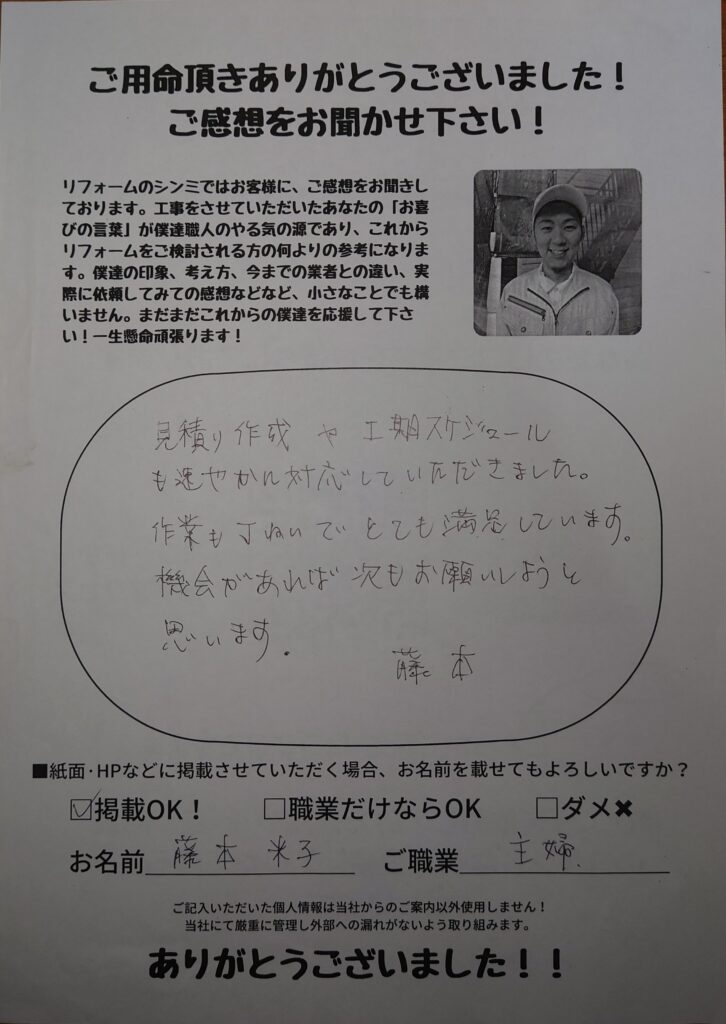 ご用命頂きありがとうございました！
ご感想をお聞かせ下さい！
リフォームのシンミではお客様に、ご感想をお聞きし
ております。工事をさせていただいたあなたの「お喜
びの言葉」が僕達職人のやる気の源であり、これから
リフォームをご検討される方の何よりの参考になりま
す。僕達の印象、考え方、今までの業者との違い、実
際に依頼してみての感想などなど、小さなことでも構
いません。まだまだこれからの僕達を応援して下さ
い！一生懸命頑張ります！
見積り作成や工期スケジュール
も速やかに対応していただきました。
作業も丁ねいでとても満足しています。
機会があれば次もお願いしようと
思います。
藤本
■紙面·HPなどに掲載させていただく場合、お名前を載せてもよろしいですか？
☑掲載OK！ □職業だけならOK □ダメ✖
お名前 藤本 米子 ご職業 主婦
ご記入いただいた個人情報は当社からのご案内以外使用しません！
当社にて厳重に管理し外部への漏れがないよう取り組みます。
ありがとうございました！！